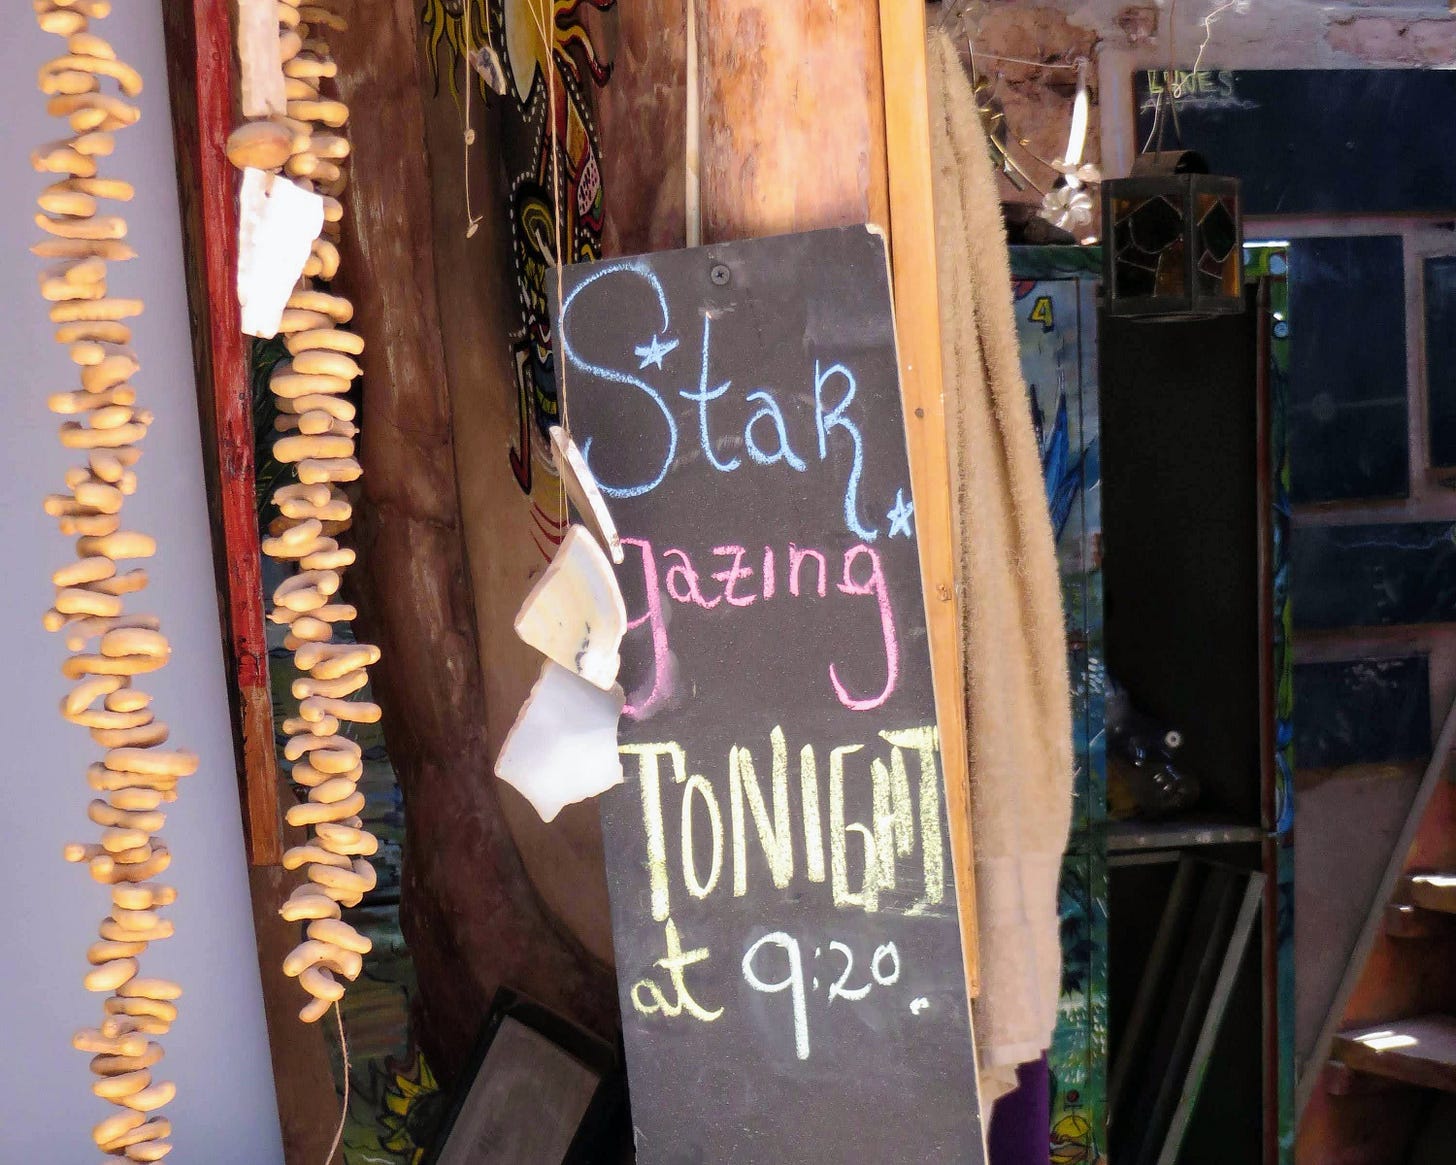 Star
gazing
TONIGHT
at 9:20
LUNES
4